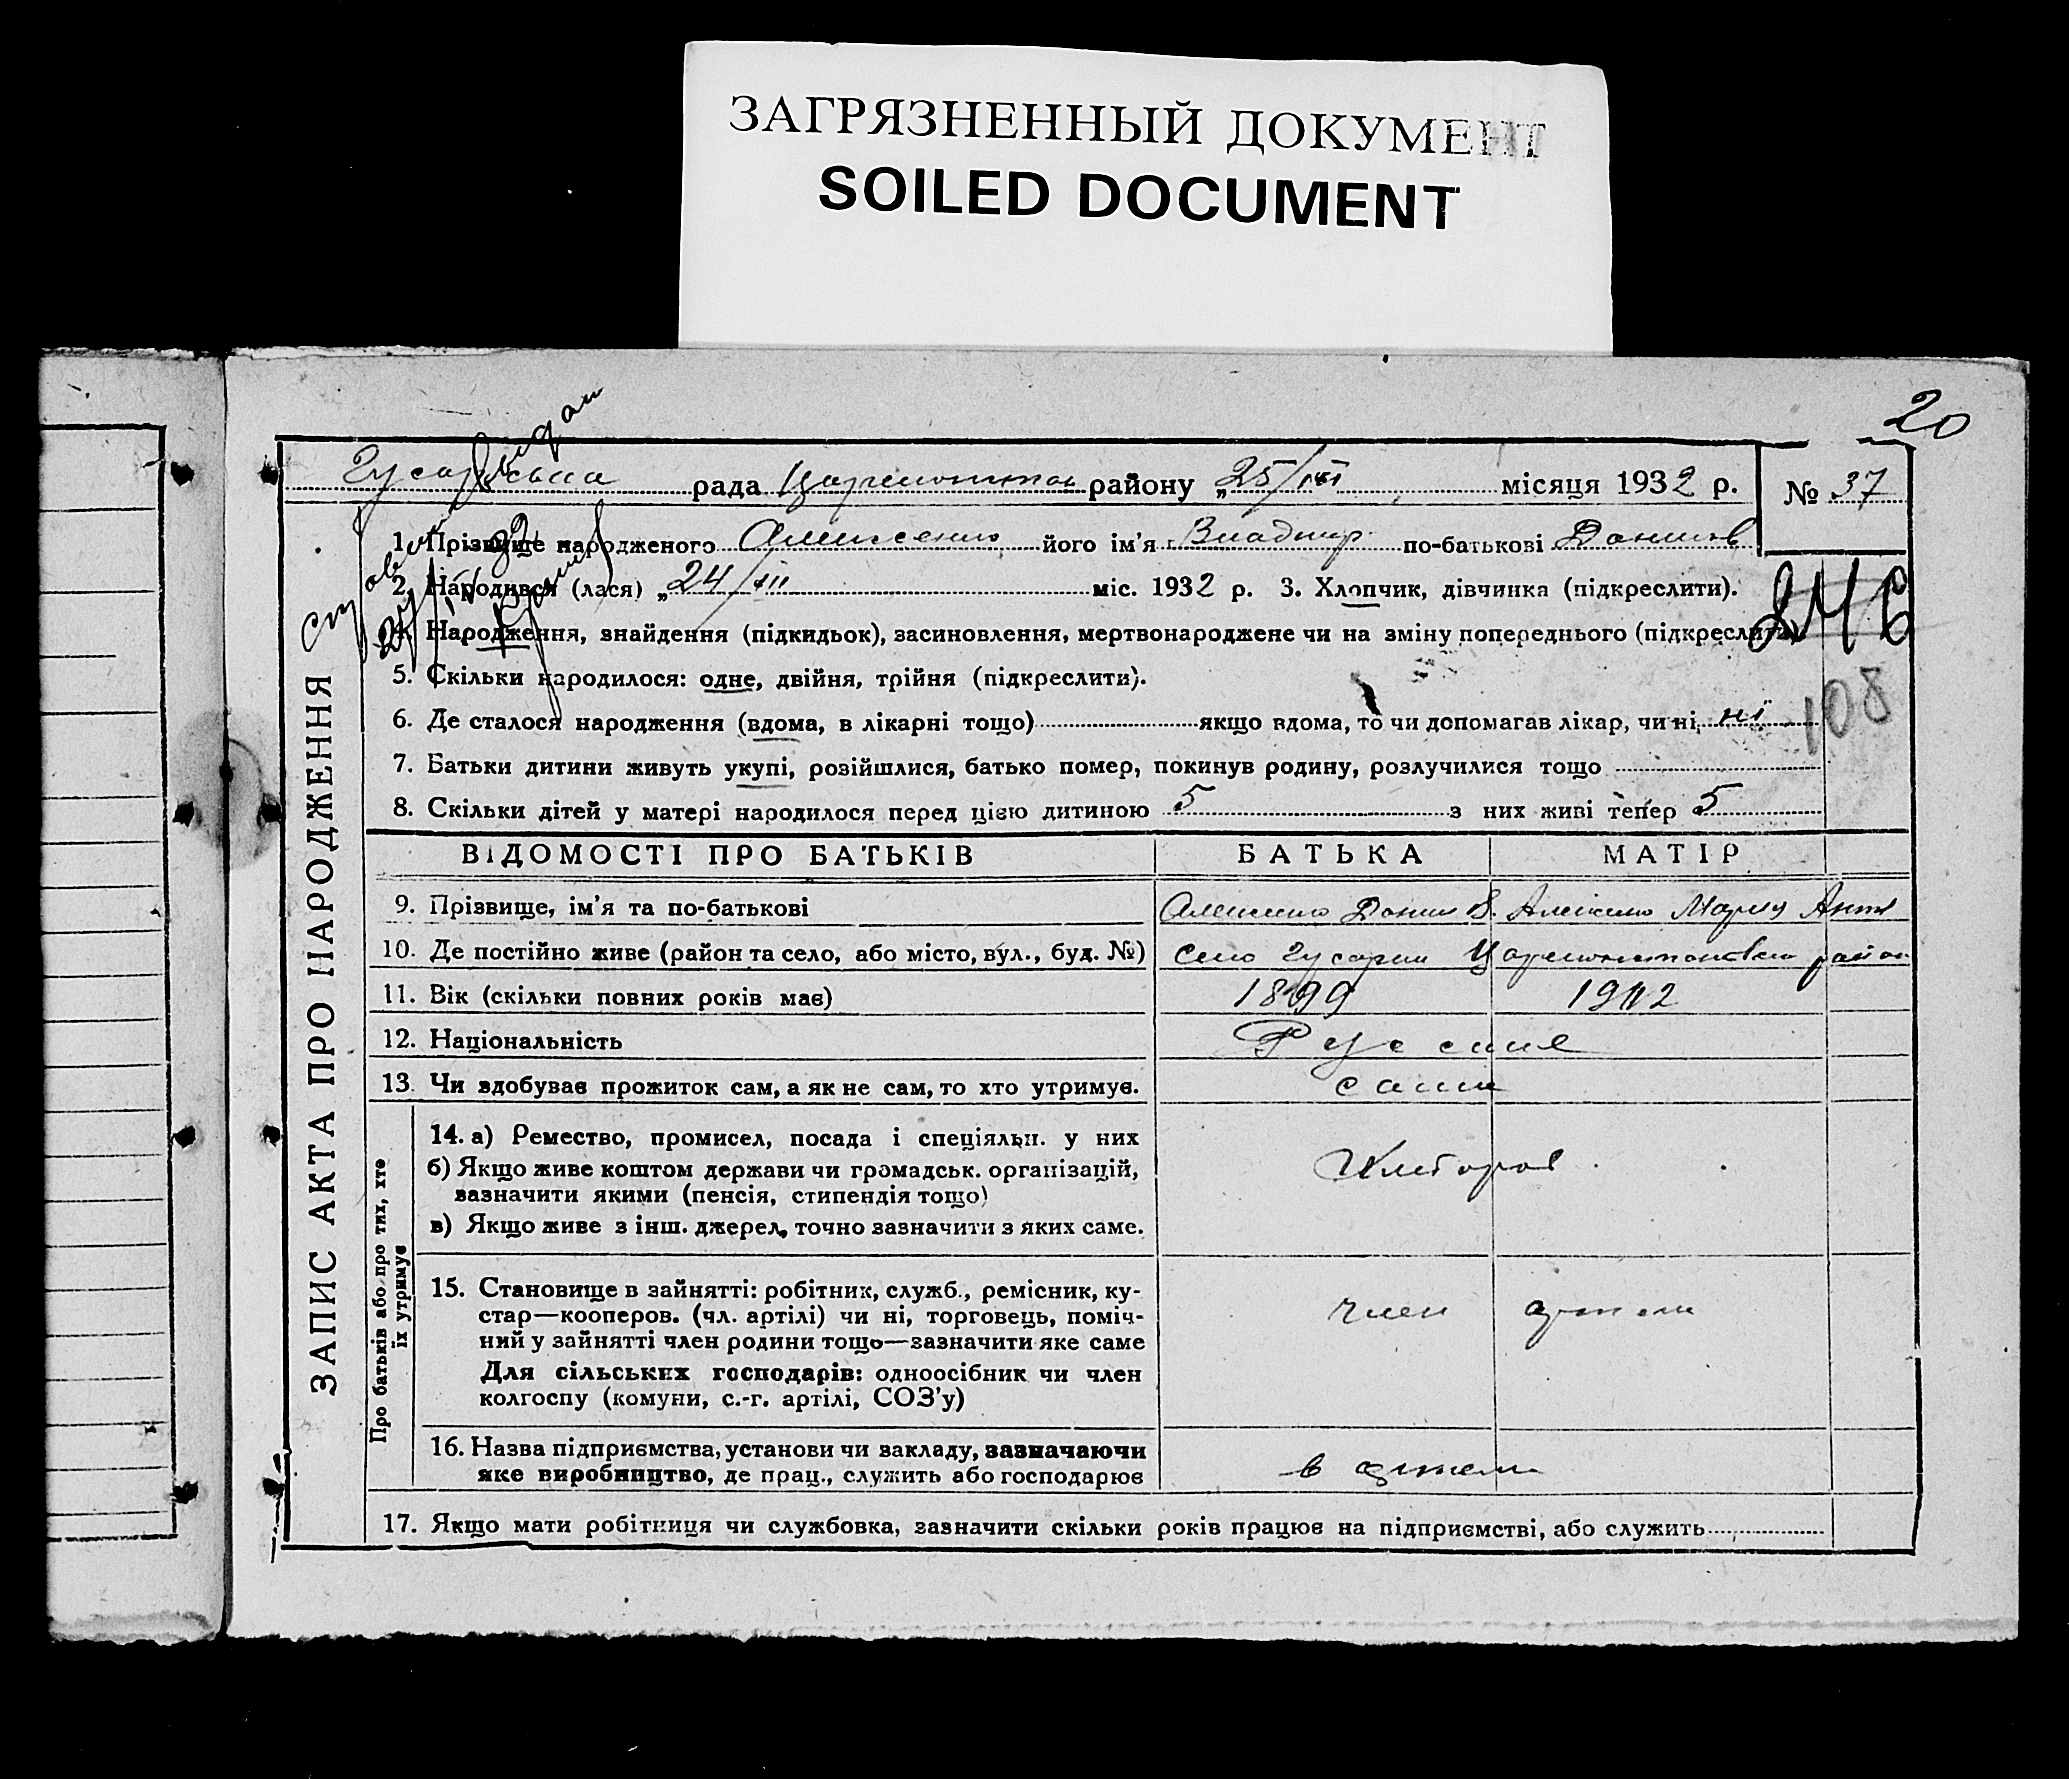 ЗАГРЯЗНЕННЫЙ ДОКУМЕНТ
SOILED DOCUMENT
20
Гусарська рада районy „25/III місяця 1932 р. № 37
1. Прізвище народженого його ім'я Владимір по-батькові Данилов
2. Народився (лася) „24/III міс. 1932 р. 3. Хлопчик, дівчинка (підкреслити).
246
4. Народження, знайдення (підкидьок), засиновлення, мертвонароджене чи на зміну попереднього (підкреслити).
5. Скільки народилося: одне, двійня, трійня (підкреслити).
108
6. Де сталося народження (вдома, в лікарні тощо) якщо вдома, то чи допомагав лікар, чи ні, ні
7. Батьки дитини живуть укупі, розійшлися, батько помер, покинув родину, розлучилися тощо
8. Скільки дітей у матері народилося перед цією дитиною 5 з них живі тепер 5
ЗАПИС АКТА ПРО НАРОДЖЕННЯ
ВІДОМОСТІ ПРО БАТЬКІВ БАТЬКА МАТІР
9. Прізвище, ім'я та по-батькові Данил Мария
10. Де постійно живе (район та село, або місто, вул., буд. №) село район
11. Вік (скільки повних років має) 1899 1912
12. Національність Руские
13. Чи здобуває прожиток сам, а як не сам, то хто утримує. сами
Про батьків або про тих, хто
їх утримує
14. а) Ремество, промисел, посада і спеціяльн. у них
б) Якщо живе коштом держави чи громадськ. організацій, Хлебороб
зазначити якими (пенсія, стипендія тощо)
в) Якщо живе з інш. джерел, точно зазначити з яких саме.
15. Становище в зайнятті: робітник, служб., ремісник, ку-
стар—кооперов. (чл. артілі) чи ні, торговець, поміч- член артели
ний у зайнятті член родини тощо—зазначити яке саме
Для сільських господарів: одноосібник чи член
колгоспу (комуни, с.-г. артілі, СОЗ'у)
16. Назва підприємства, установи чи закладу, зазначаючи
яке виробництво, де прац., служить або господарює в артели
17. Якщо мати робітниця чи службовка, зазначити скільки років працює на підприємстві, або служить